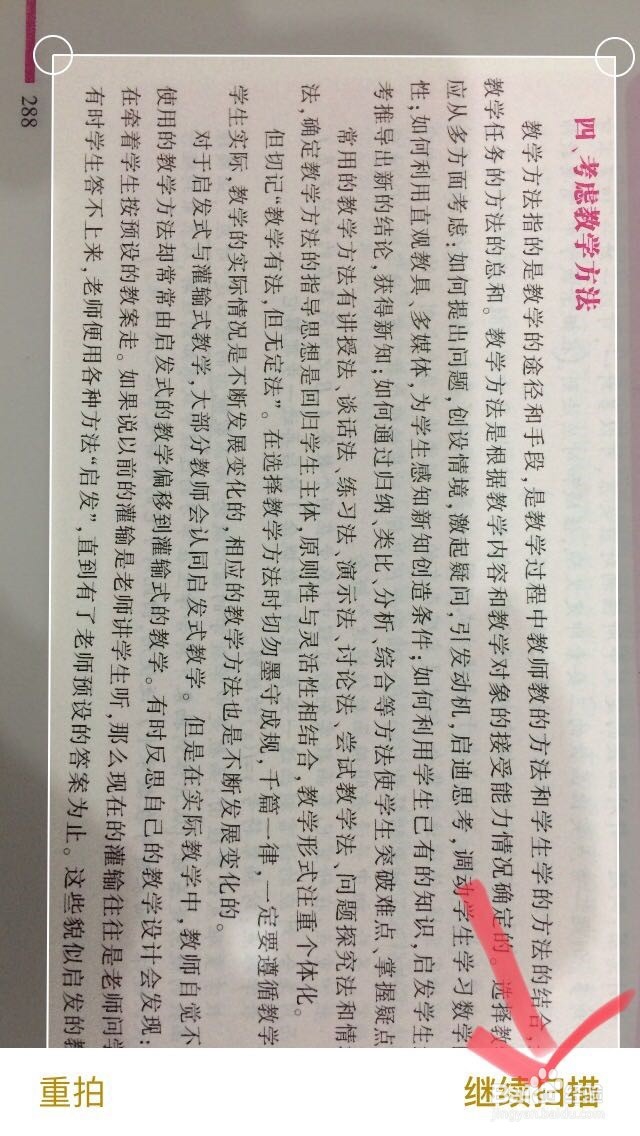 288
四、考虑教学方法
教学方法指的是教学的途径和手段，是教学过程中教师教的方法和学生学的方法的结合，
教学任务的方法的总和。教学方法是根据教学内容和教学对象的接受能力情况确定的。选择教
应从多方面考虑：如何提出问题，创设情境，激起疑问，引发动机，启迪思考，调动学生学习数学
性；如何利用直观教具、多媒体，为学生感知新知创造条件；如何利用学生已有的知识，启发学生
考推导出新的结论，获得新知；如何通过归纳、类比、分析、综合等方法使学生突破难点、掌握疑点
常用的教学方法有讲授法、谈话法、练习法、演示法、讨论法、尝试教学法、问题探究法和情
法，确定教学方法的指导思想是回归学生主体，原则性与灵活性相结合，教学形式注重个体化。
但切记“教学有法，但无定法”。在选择教学方法时切勿墨守成规，千篇一律，一定要遵循教学
学生实际，教学的实际情况是不断发展变化的，相应的教学方法也是不断发展变化的。
对于启发式与灌输式教学，大部分教师会认同启发式教学。但是在实际教学中，教师自觉不
使用的教学方法却常常由启发式的教学偏移到灌输式的教学。有时反思自己的教学设计会发现：
在牵着学生按预设的教案走。如果说以前的灌输是老师讲学生听，那么现在的灌输往往是老师问学
有时学生答不上来，老师便用各种方法“启发”，直到有了老师预设的答案为止。这些貌似启发的教
重拍
继续扫描
jingyan.baidu.com